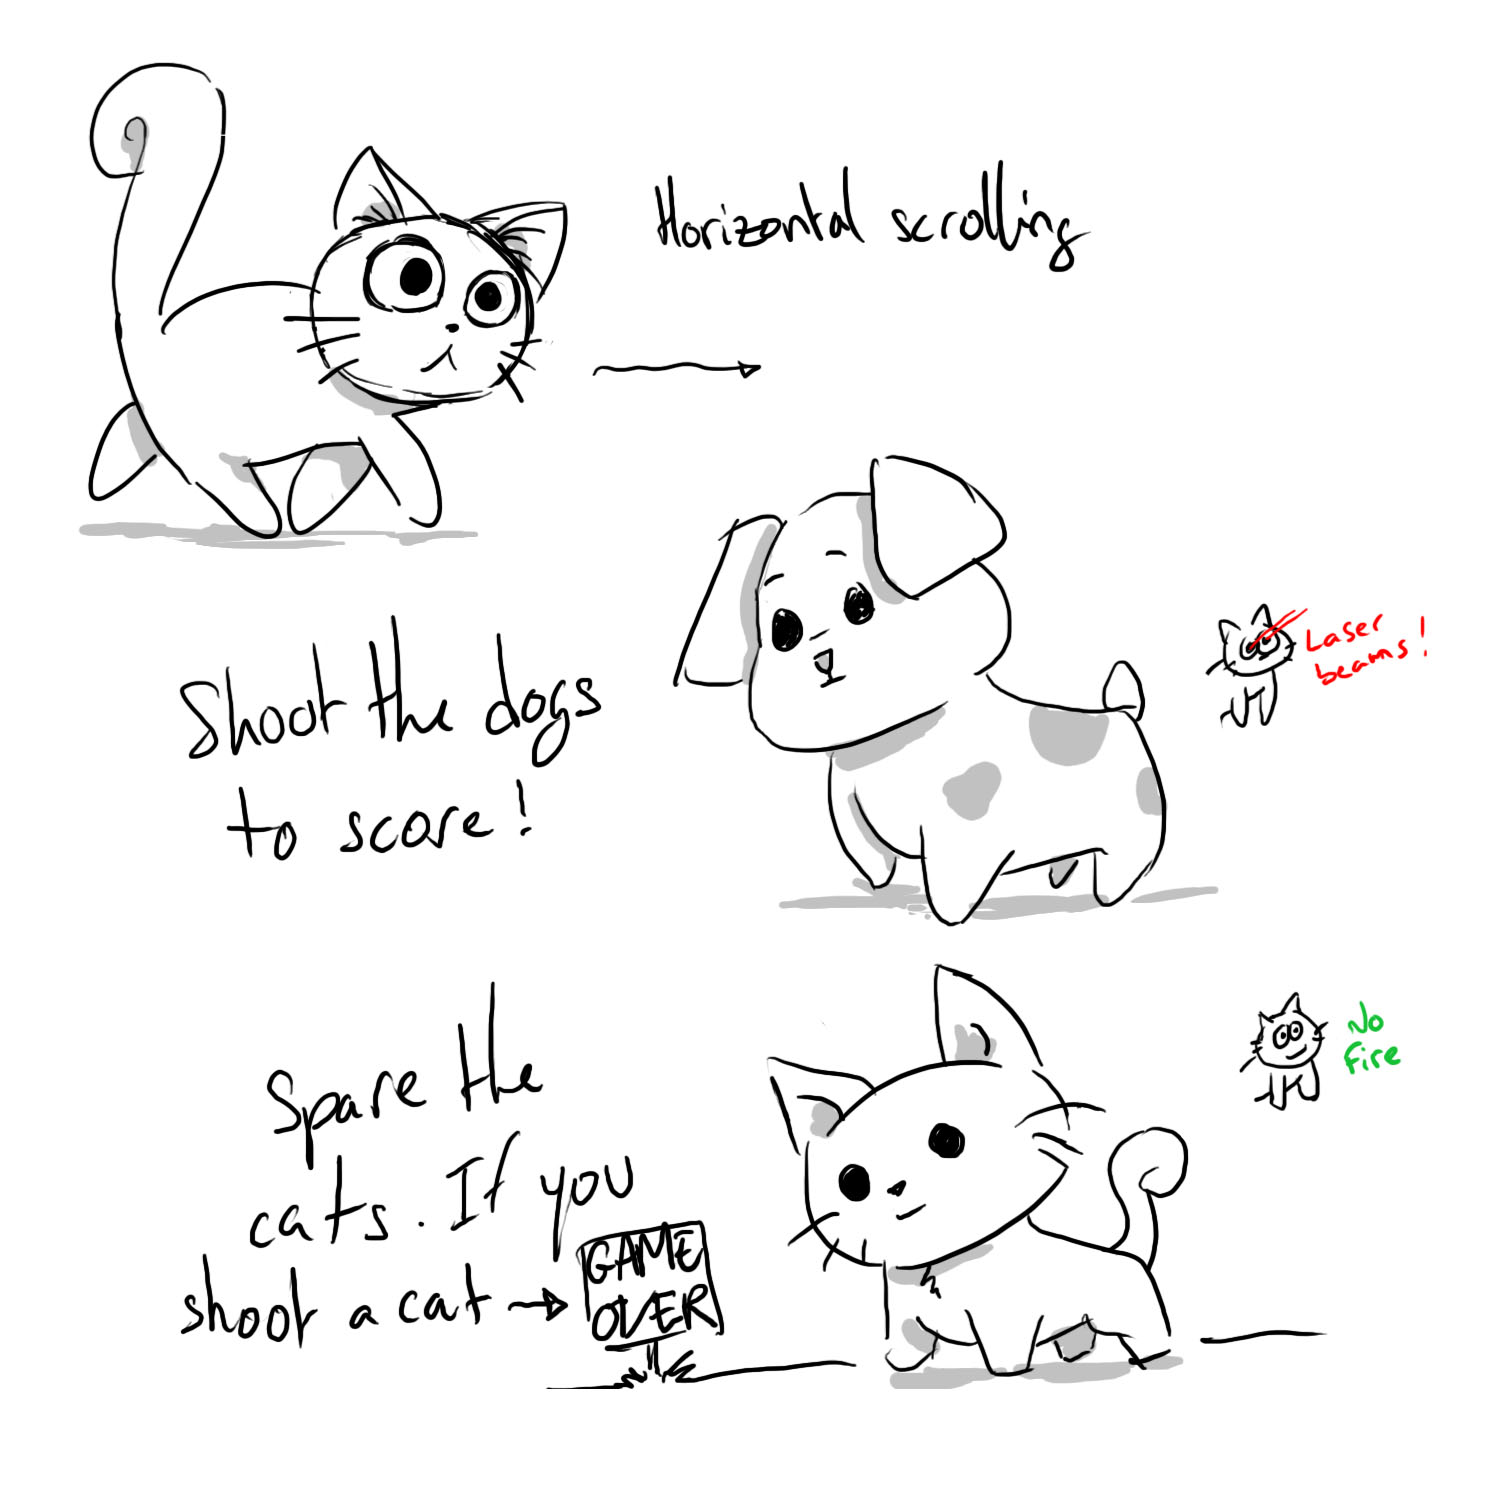 Horizontal scrolling
Shoot the dogs
to score!
Laser
beams!
Spare the
cats. If you
shoot a cat →
GAME
OVER
No
fire